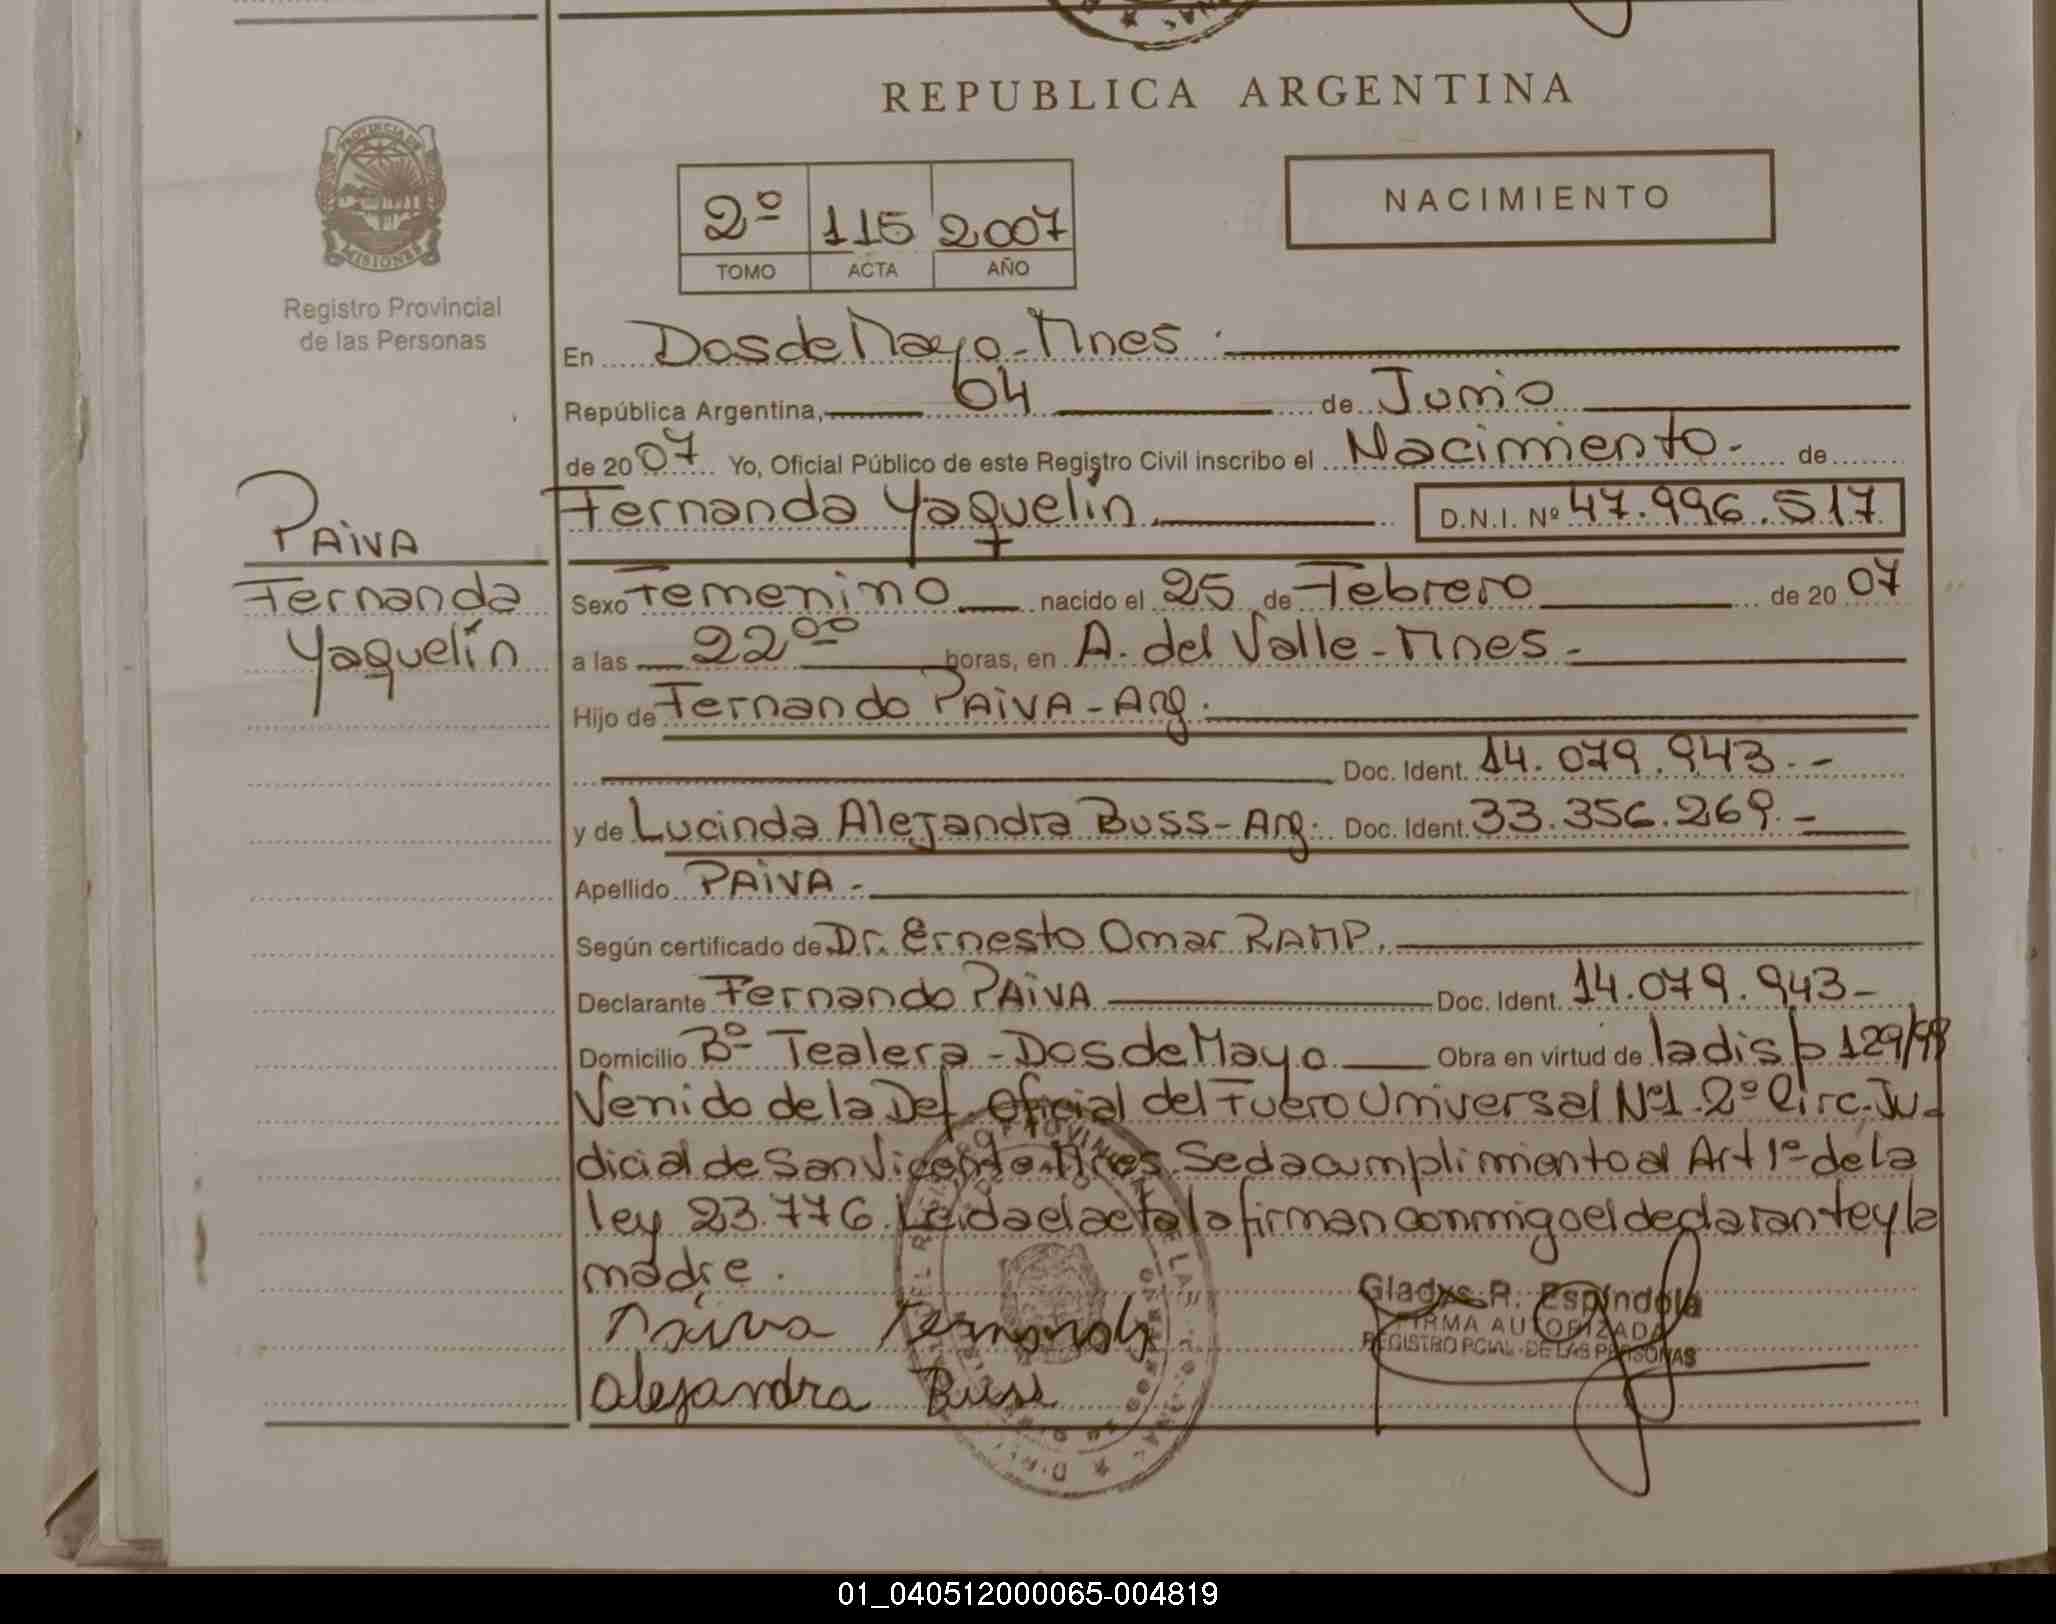 REPUBLICA ARGENTINA
PROVINCIA DE MISIONES
Registro Provincial
de las Personas
2º 115 2007
TOMO ACTA AÑO
NACIMIENTO
En Dos de Mayo - Mnes.
República Argentina, 04 de Junio
de 2007 Yo, Oficial Público de este Registro Civil inscribo el Nacimiento - de
Fernanda Yaquelin. D.N.I. Nº 47.996.517
PAIVA
Fernanda
Yaquelín
Sexo Femenino nacido el 25 de Febrero de 2007
a las 22⁰⁰ horas, en A. del Valle - Mnes -
Hijo de Fernando PAIVA - Arg.
Doc. Ident. 14.079.943.-
y de Lucinda Alejandra Buss - Arg. Doc. Ident. 33.356.269.-
Apellido PAIVA -
Según certificado de Dr. Ernesto Omar RAMP.
Declarante Fernando PAIVA Doc. Ident. 14.079.943-
Domicilio Bº Tealera - Dos de Mayo Obra en virtud de la disp 129/98
Venido de la Def. Oficial del Fuero Universal Nº1. 2º Circ. Ju-
dicial de San Vicente. Mnes. Se da cumplimiento al Art 1º de la
ley 23.776. Leida el acta la firman conmigo el declarante y la
madre.
Paiva Fernando
Alejandra Buss
Gladys R. Espíndola
FIRMA AUTORIZADA
REGISTRO PCIAL. DE LAS PERSONAS
01_040512000065-004819